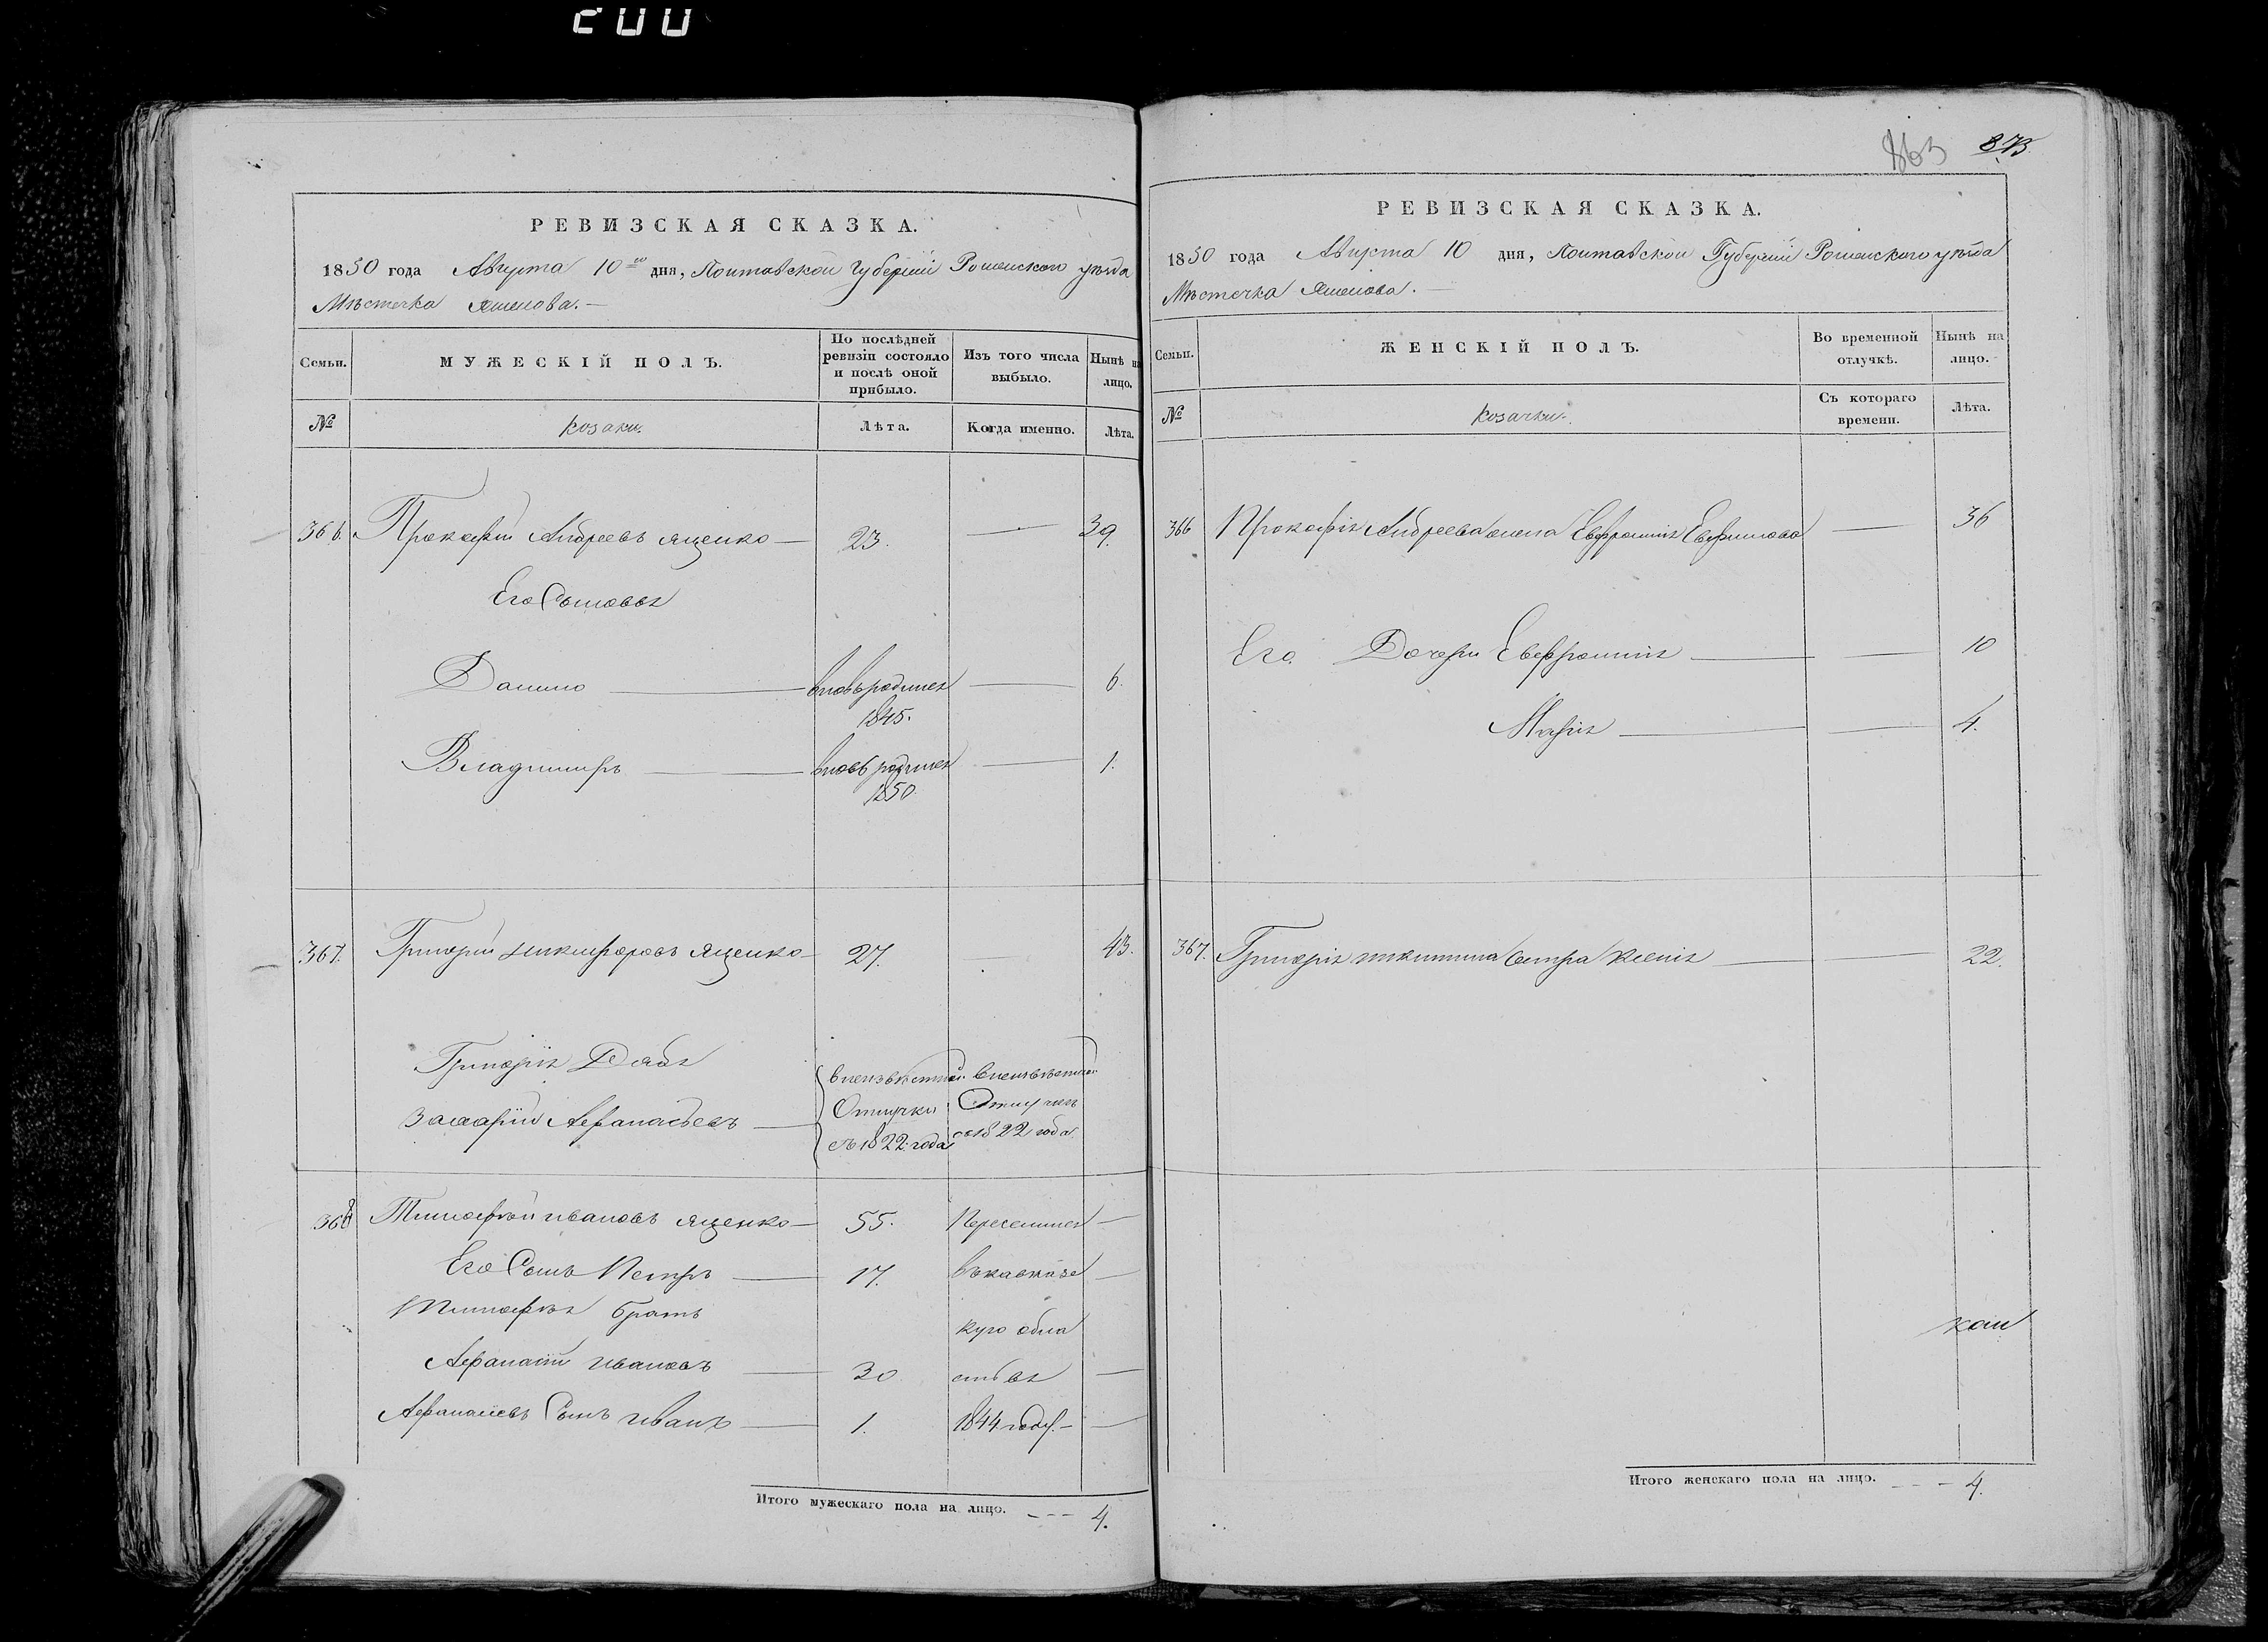 200
РЕВИЗСКАЯ СКАЗКА.
1850 года Августа 10го дня, Полтавской Губерніи Роменскаго уѣзда
Мѣстечка
Семьи.
МУЖЕСКІЙ ПОЛЪ.
По послѣдней ревизіи состояло и послѣ оной прибыло.
Изъ того числа выбыло.
Нынѣ на лицо.
№
козаки.
Лѣта.
Когда именно.
Лѣта.
366. Прокофій Андреевъ Яценко 23. 39.
Его Сыновья
Данило вновьродился 1845. 6.
Владимиръ вновь родился 1850 1.
367. Григорій Никифоровъ Яценко 27. 43.
Григорія Дядя
Афанасьевъ
въ неизвѣстной въ неизвѣстной
Отлучки Отлучкѣ
съ 1822 года съ 1822 года
368 Тимофѣй Ивановъ Яценко 55. Переселился
Его Сынъ Петръ 17. въ кавказс
Тимофѣя братъ
кую обла
Афанасій Ивановъ 30 сть въ
Афанасіевъ Сынъ Иванъ 1. 1844 году.
Итого мужескаго пола на лицо. 4.
863 873
РЕВИЗСКАЯ СКАЗКА.
1850 года Августа 10 дня, Полтавской Губерніи Роменскаго уѣзда
Мѣстечка
Семьи.
ЖЕНСКІЙ ПОЛЪ.
Во временной отлучкѣ.
Нынѣ на лицо.
№
козачки.
Съ котораго времени.
Лѣта.
366 Прокофія Андреева жена Евфросинія Евфимова 36
Его Дочери Евфросинія 10
Марія 4.
367. Григорія Сестра Ксенія 22.
Итого женскаго пола на лицо. 4.